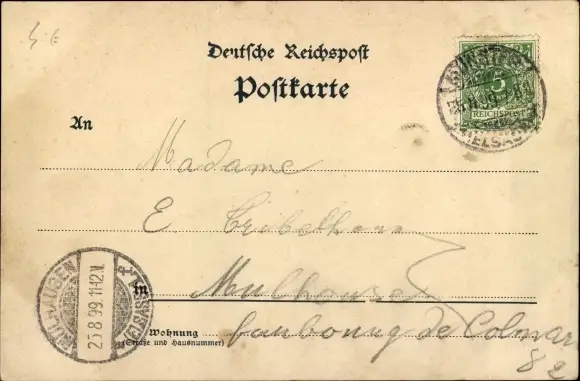 Deutsche Reichspost
Postkarte
5
REICHSPOST
An
Madame
E
in Mulhouse
MÜLHAUSEN
25.8.99.11-12.V.
Wohnung
(Straße und Hausnummer)
faubourg de Colmar
82